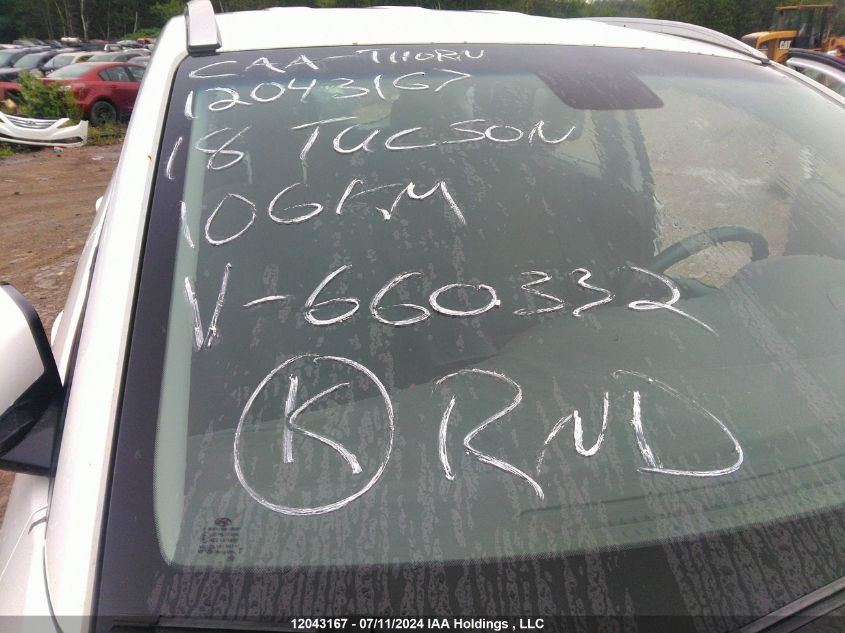 CAA-THORN
12043167
18 TUCSON
106KM
V-660332
K RND
CAT
12043167 - 07/11/2024 IAA Holdings , LLC